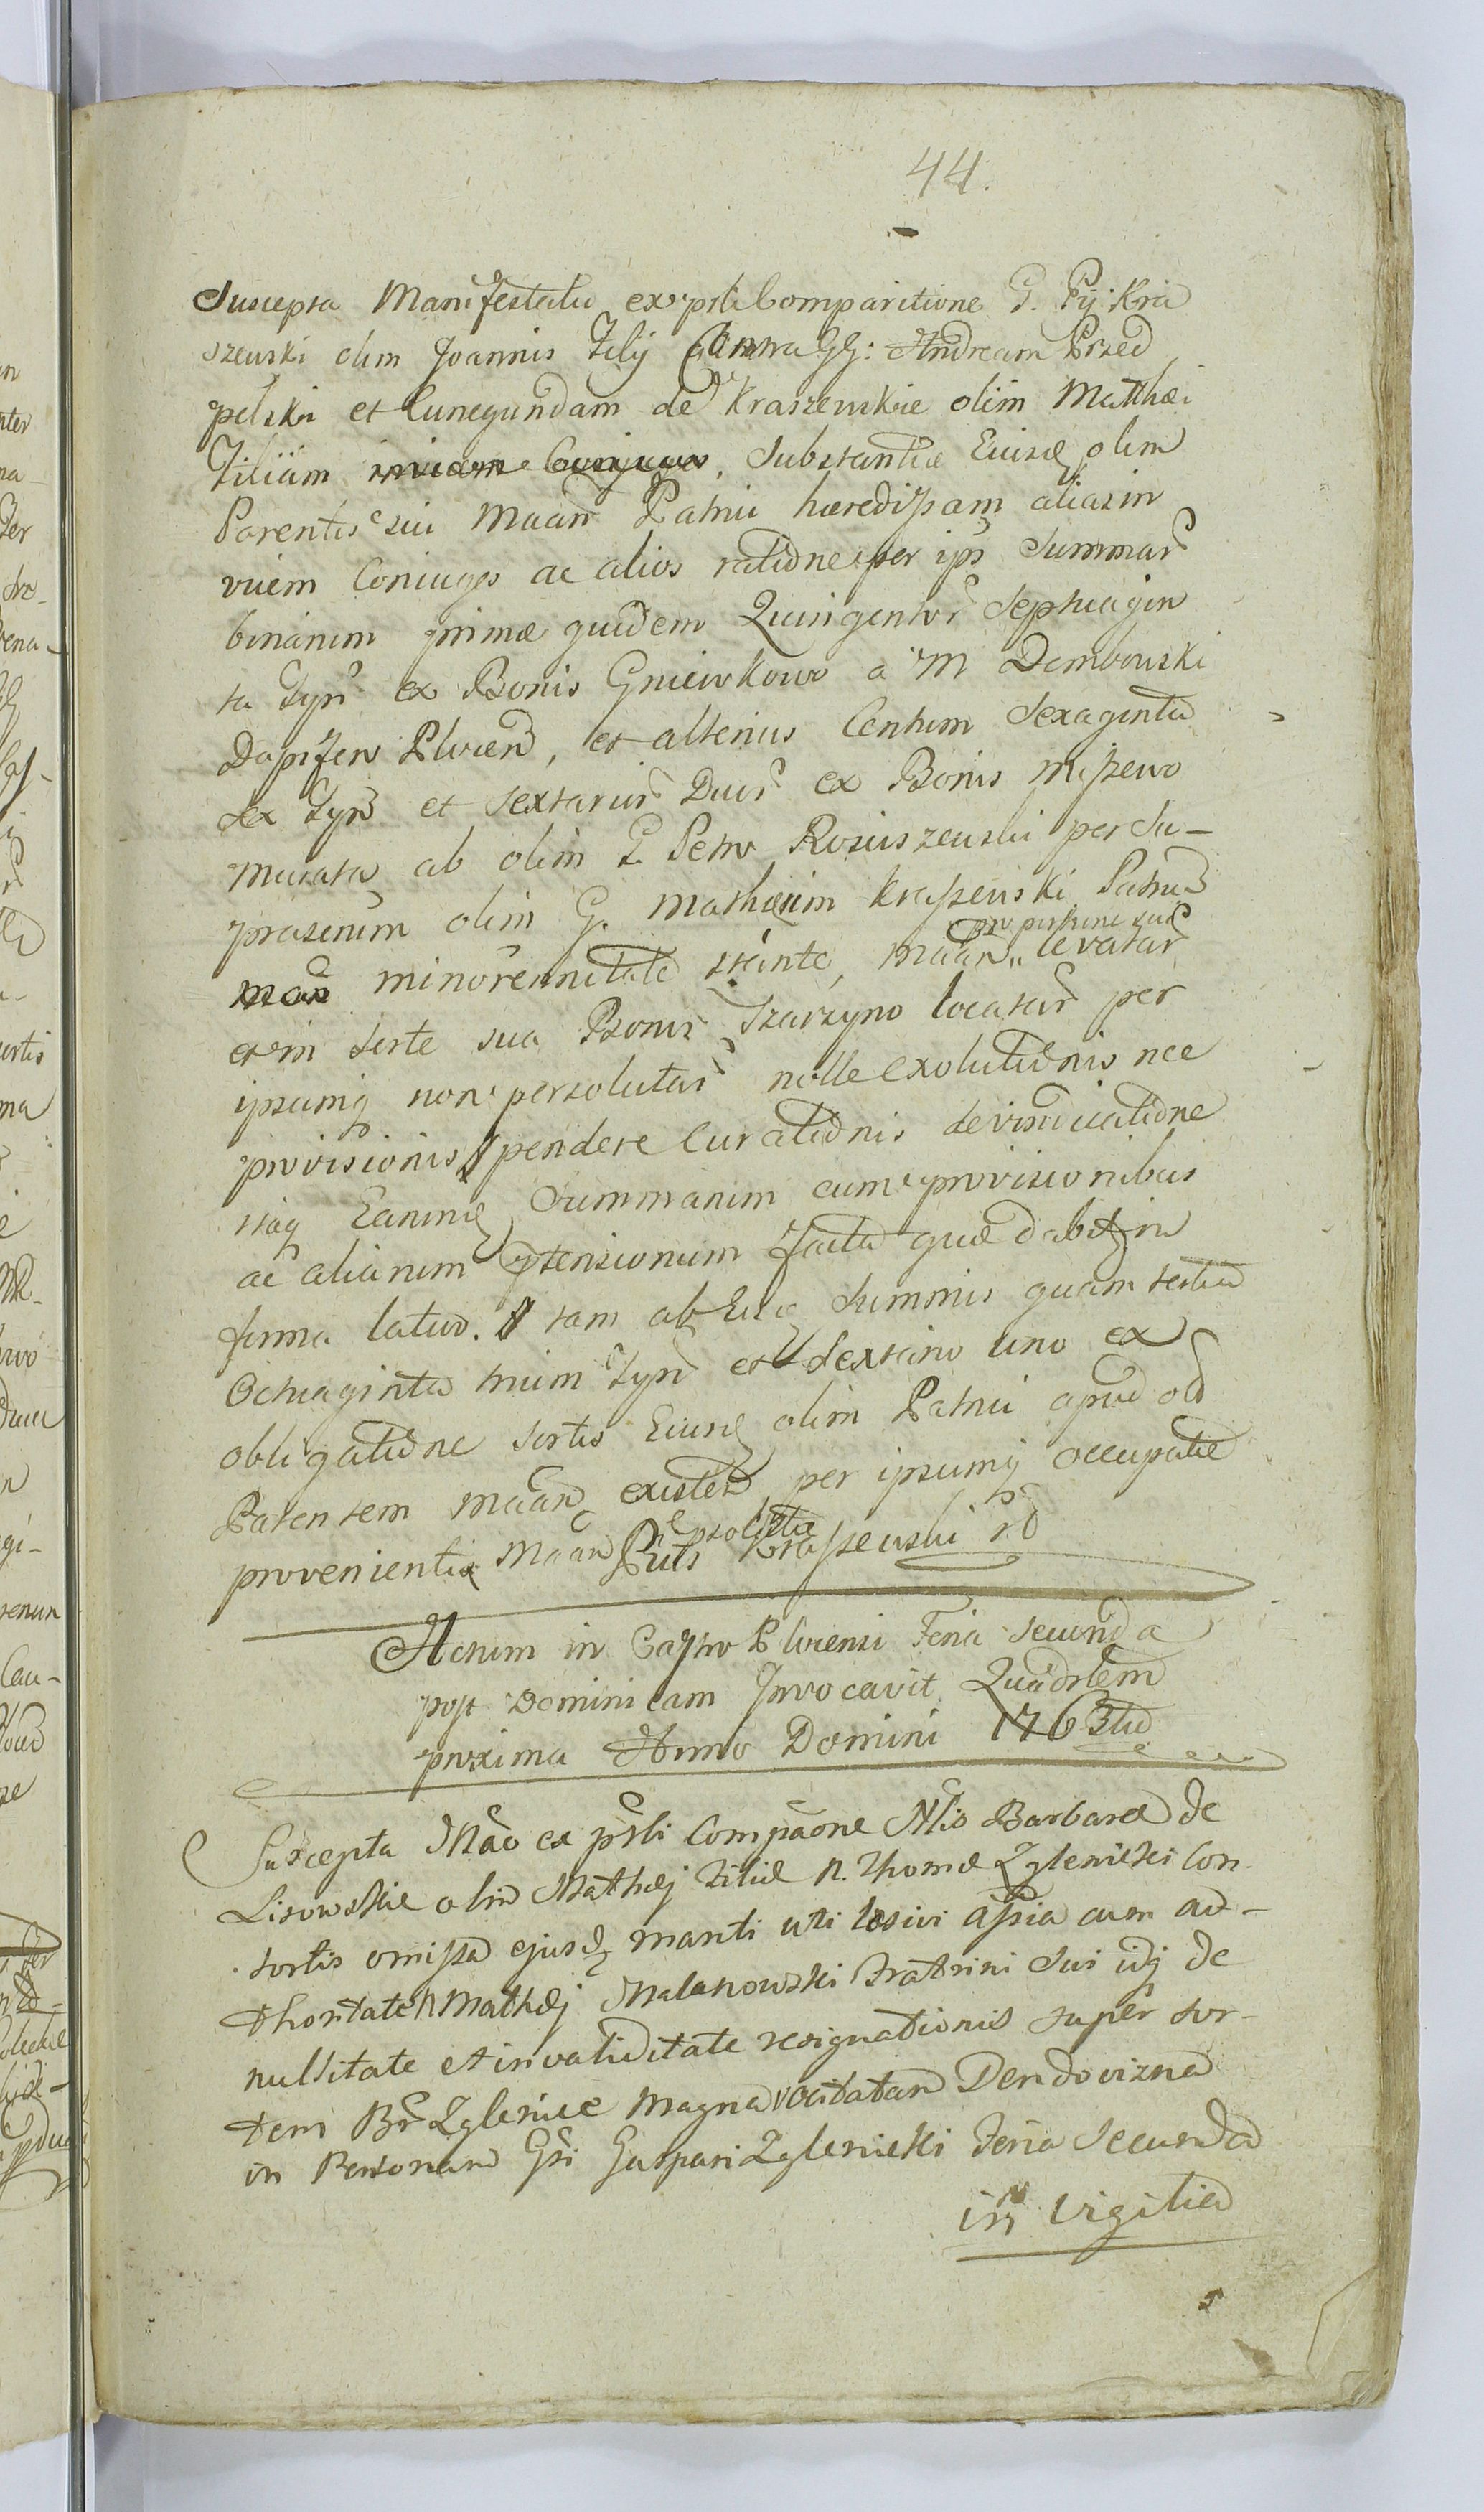 44.
Suscepta Manifestatio ex psti Comparitione G. Pij. Kra
szewski olim Joannis Filij Contra GG: Andream Przed
pelski et Cunegundam de Kraszewskie olim Matthæi
Filiam Substantiæ Eiusd olim
Parentis sui Maan Patrui hæredissam alias in
vicem Coniuges ac alios ratione per ips Summar
binarum primæ quidem Quingentor Septuagin
ta Tyn ex Bonis Gniewkowo a M Dembowski
Dapifero Plocen, et alterius Centum Sexaginta
sex Tyn et sextarum Duor ex Bonis Miszewo
Murata ab olim G Petro Rosciszewski per Su-
prascrium olim G. Mathæum Kraszewski Patruu
Maan minorennitate stante, Maan levatar
pro portione sua
et in sorte sua Bonis Tzarzyno locatar per
ipsumq non persolutar nolle exolutionis nec
provisionis pendere Curationis devindicatione
itaq Earund Summarum cum provisionibus
ac aliarum ptensionum facta quæ dabit in
forma latiori. tam ab Eisd Summis quam sexta
Octuaginta trium Tyn et Sextario uno ex
obligatione sortis Eiusd olim Patrui apud od
Parentem Maan existen per ipsumq occupatæ
provenientis Maan Pius Kraszewski
Actum in Castro Plocensi Feria Secunda
post Dominicam Invocavit Quadrlem
proxima Anno Domini 1763tio
Suscepta Mão ex psti Compãone Nlis Barbaræ de
Lisowskie olim Mathej Filiæ N. Thomæ Zglenicki Con
sortis omissa ejusd mariti uti læsivi assia cum au-
thoritate N Mathej Malanowski Fratrini Sui idq de
nullitate et invaliditate resignationis super sor-
tem Br Zglenice Magna vocitatam Dendowizna
in Personam Gsi Gaspari Zglenicki Feria Secunda
in Vigilia